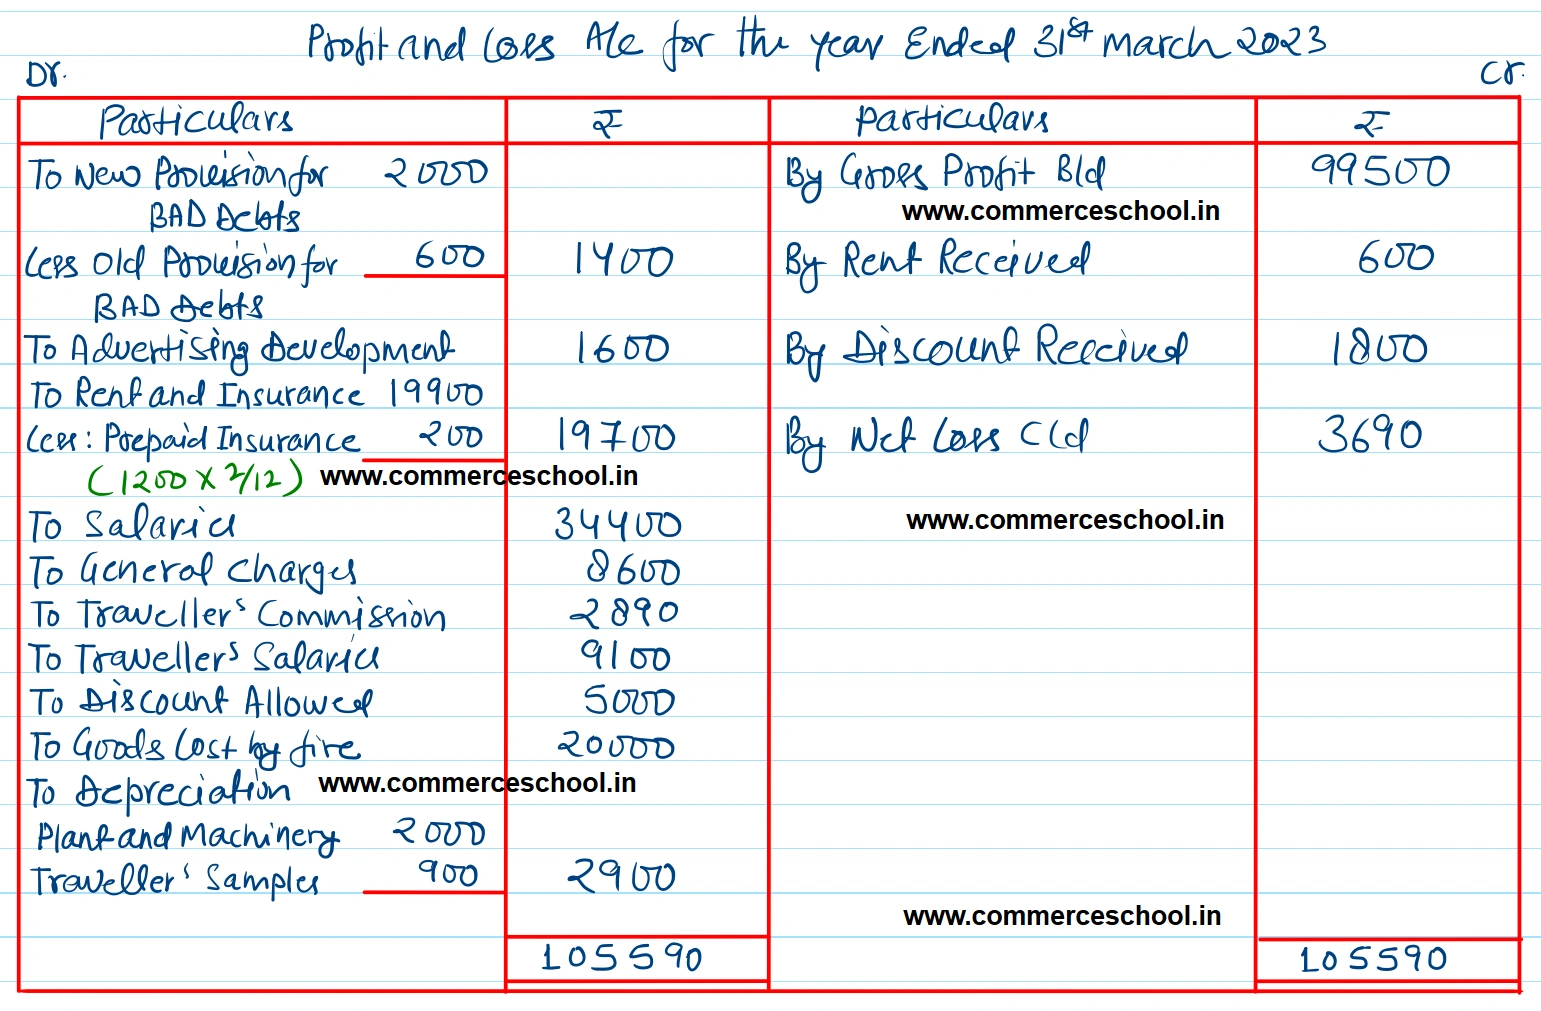 Profit and Loss A/c for the year Ended 31st March 2023
Dr. Cr.
Particulars ₹ Particulars ₹
To New Provision for 2000 By Gross Profit B/d 99500
BAD Debts www.commerceschool.in
Less Old Provision for 600 1400 By Rent Received 600
BAD Debts
To Advertising Development 1600 By Discount Received 1800
To Rent and Insurance 19900
Less: Prepaid Insurance 200 19700 By Net Loss C/d 3690
(1200 X 2/12) www.commerceschool.in
To Salaries 34400 www.commerceschool.in
To General Charges 8600
To Traveller's Commission 2890
To Traveller's Salaries 9100
To Discount Allowed 5000
To Goods Lost by fire 20000
To Depreciation www.commerceschool.in
Plant and Machinery 2000
Traveller's Samples 900 2900
www.commerceschool.in
105590 105590